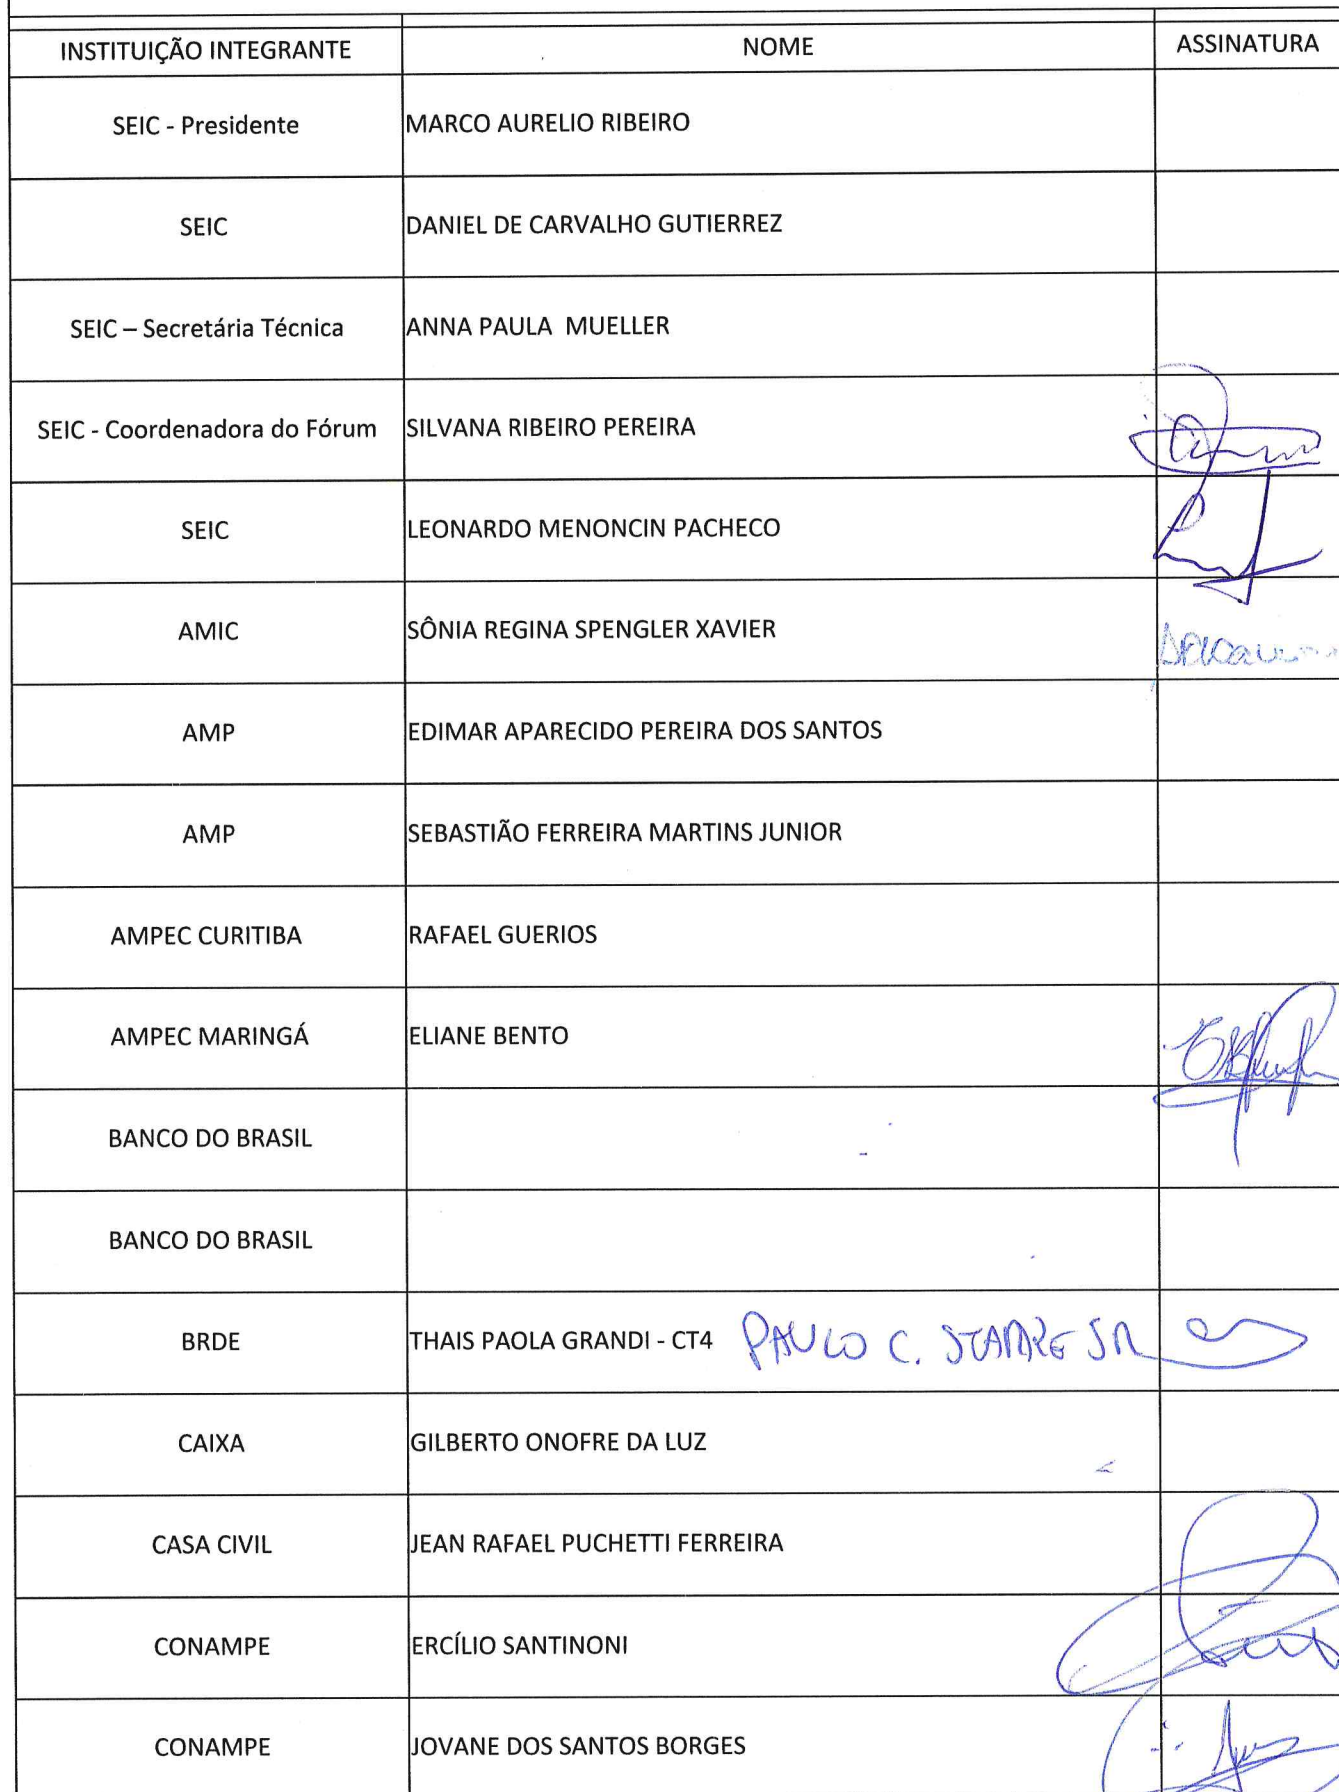 INSTITUIÇÃO INTEGRANTE NOME ASSINATURA
SEIC - Presidente MARCO AURELIO RIBEIRO
SEIC DANIEL DE CARVALHO GUTIERREZ
SEIC – Secretária Técnica ANNA PAULA MUELLER
SEIC - Coordenadora do Fórum SILVANA RIBEIRO PEREIRA
SEIC LEONARDO MENONCIN PACHECO
AMIC SÔNIA REGINA SPENGLER XAVIER
AMP EDIMAR APARECIDO PEREIRA DOS SANTOS
AMP SEBASTIÃO FERREIRA MARTINS JUNIOR
AMPEC CURITIBA RAFAEL GUERIOS
AMPEC MARINGÁ ELIANE BENTO
BANCO DO BRASIL
BANCO DO BRASIL
BRDE THAIS PAOLA GRANDI - CT4 PAULO C. STARKE JR
CAIXA GILBERTO ONOFRE DA LUZ
CASA CIVIL JEAN RAFAEL PUCHETTI FERREIRA
CONAMPE ERCÍLIO SANTINONI
CONAMPE JOVANE DOS SANTOS BORGES